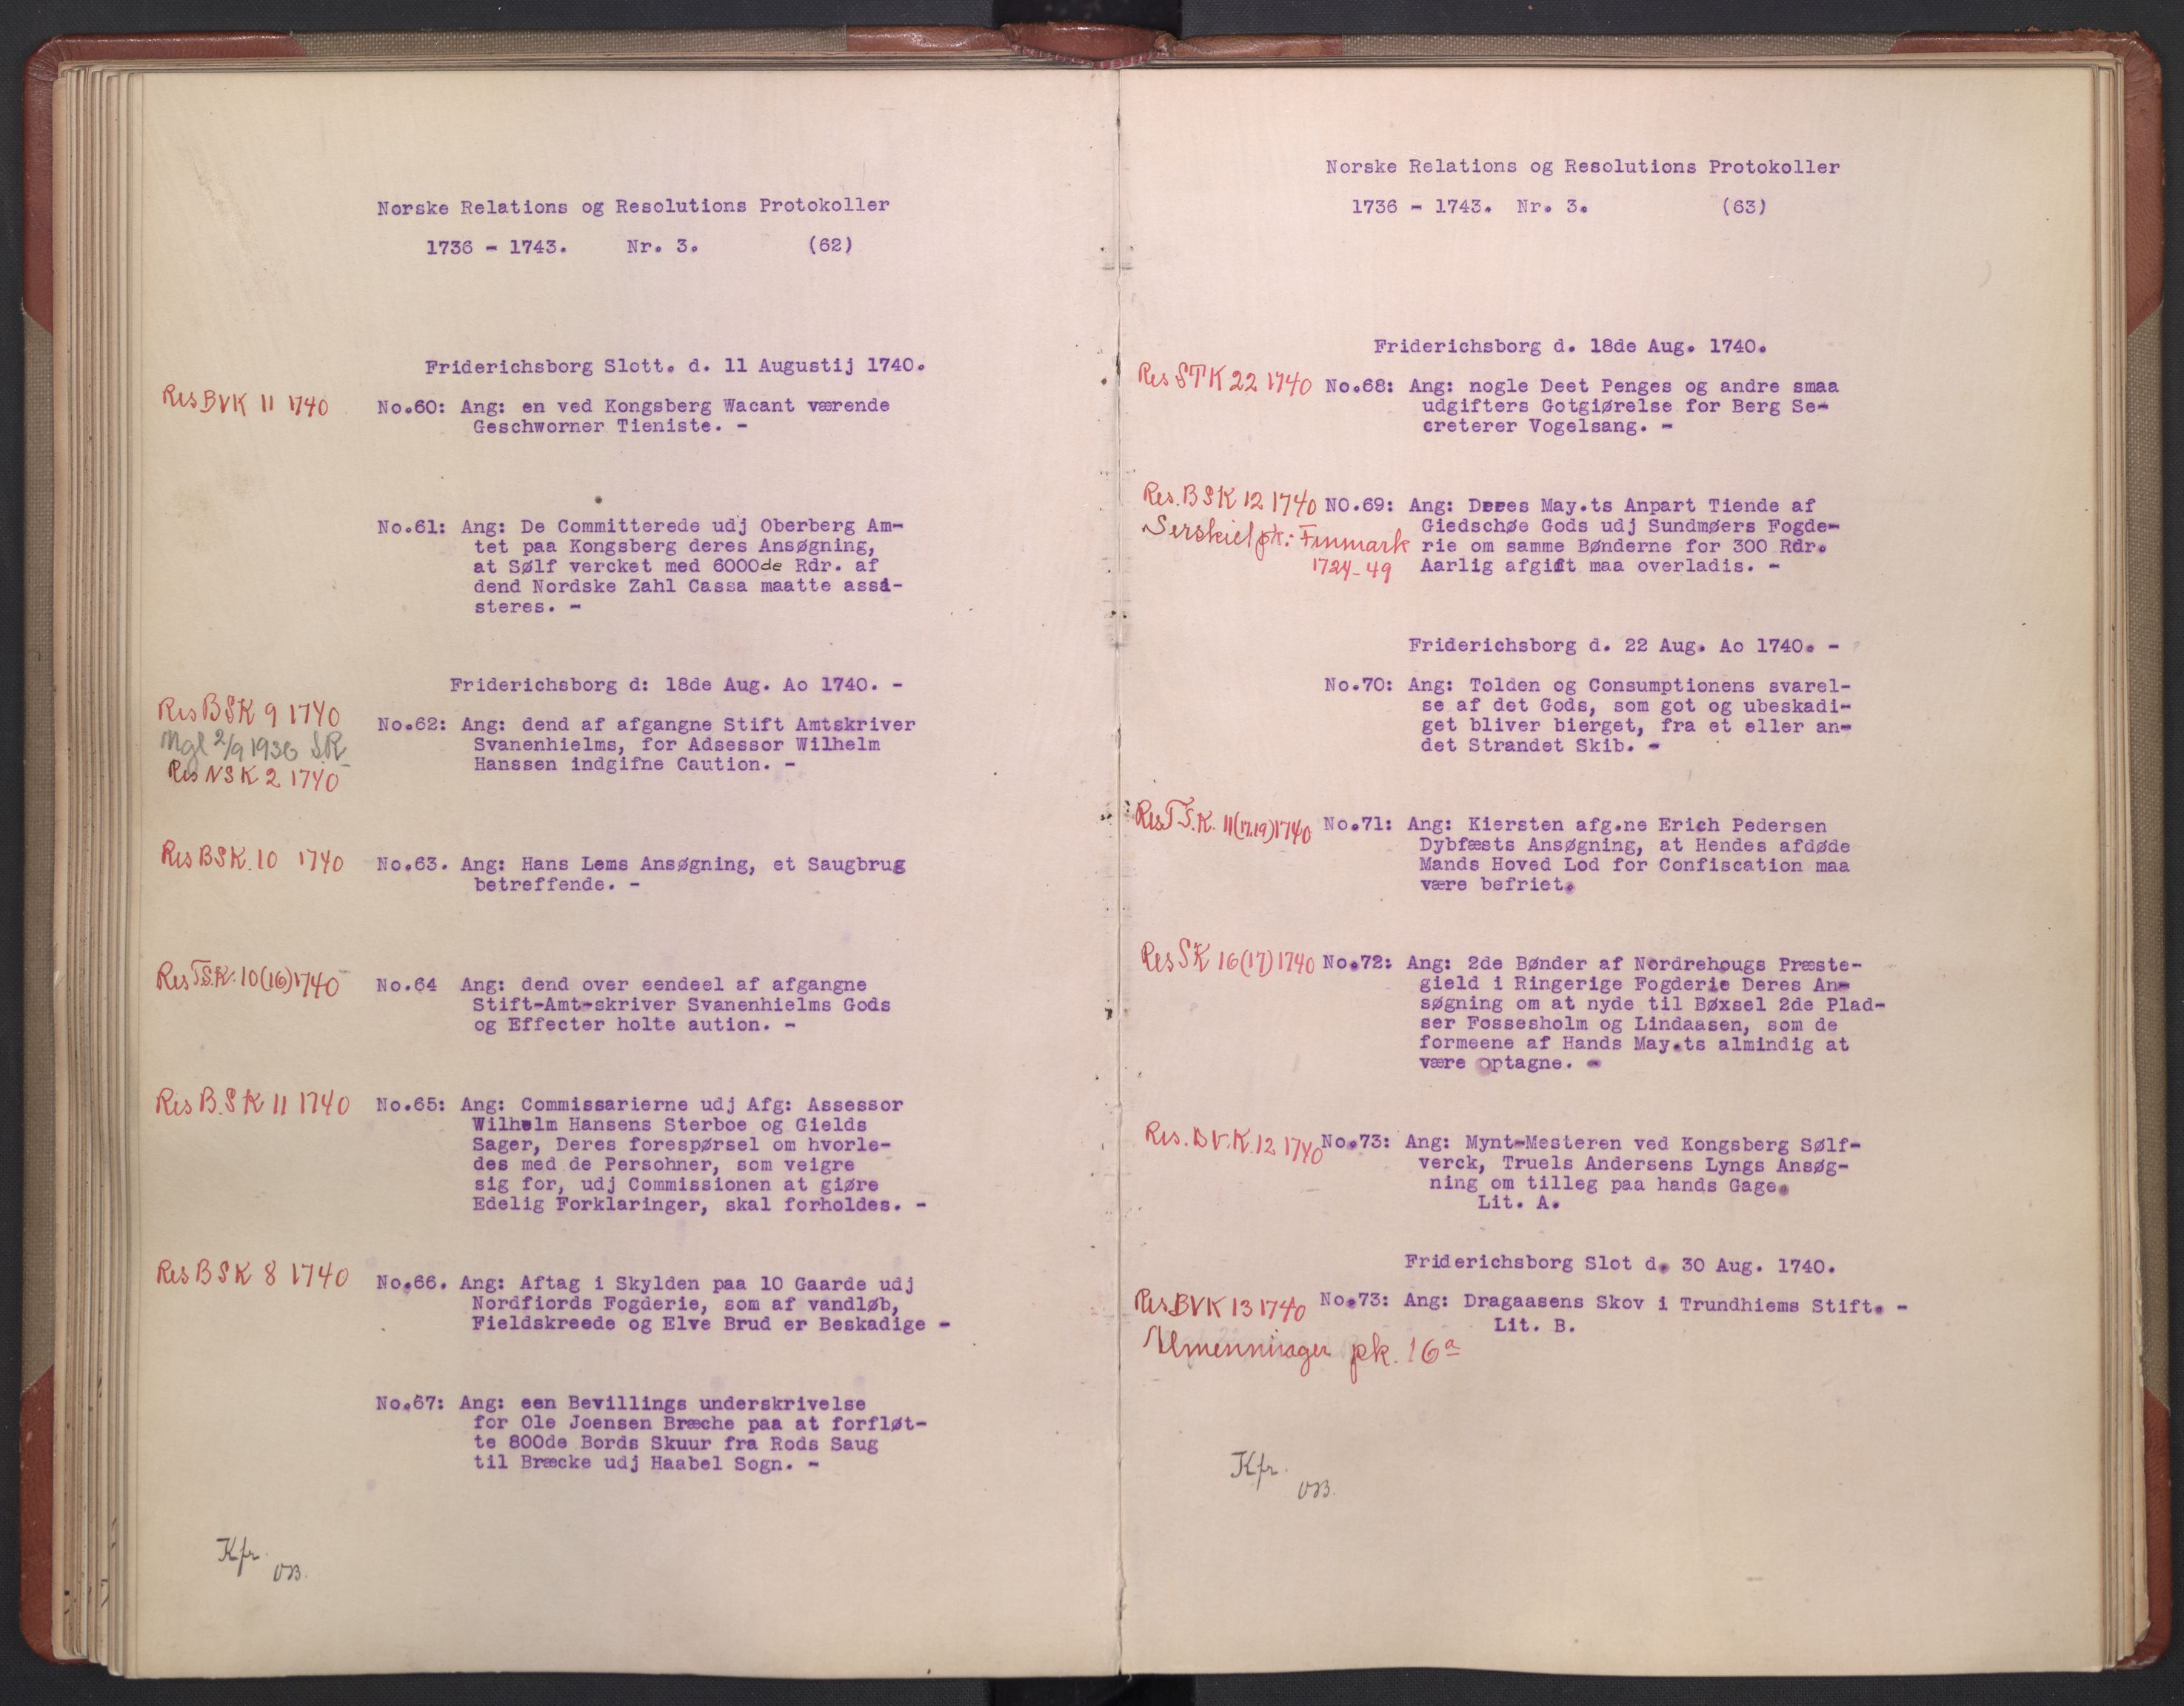 Norske Relations og Resolutions Protokoller
1736 - 1743. Nr. 3. (62)
Friderichsborg Slott. d. 11 Augustij 1740.
Res BVK 11 1740 No.60: Ang: en ved Kongsberg Wacant værende
Geschworner Tieniste. -
No.61: Ang: De Committerede udj Oberberg Am-
tet paa Kongsberg deres Ansøgning,
at Sølf vercket med 6000de Rdr. af
dend Nordske Zahl Cassa maatte assi-
steres. -
Friderichsborg d: 18de Aug. Ao 1740. -
Res BSK 9 1740 No.62: Ang: dend af afgangne Stift Amtskriver
Mgl 2/9 1936 SR Svanenhielms, for Adsessor Wilhelm
Res NSK 2 1740 Hanssen indgifne Caution. -
Res BSK. 10 1740 No.63. Ang: Hans Lems Ansøgning, et Saugbrug
betreffende. -
Res T.S.K. 10(16)1740 No.64 Ang: dend over eendeel af afgangne
Stift-Amt-skriver Svanenhielms Gods
og Effecter holte aution. -
Res B.SK 11 1740 No.65: Ang: Commissarierne udj Afg: Assessor
Wilhelm Hansens Sterboe og Gields
Sager, Deres forespørsel om hvorle-
des med de Persohner, som veigre
sig for, udj Commissionen at giøre
Edelig Forklaringer, skal forholdes. -
Res BSK 8 1740 No.66. Ang: Aftag i Skylden paa 10 Gaarde udj
Nordfiords Fogderie, som af vandløb,
Fieldskreede og Elve Brud er Beskadige -
No.67: Ang: een Bevillings underskrivelse
for Ole Joensen Bræche paa at forfløt-
te 800de Bords Skuur fra Rods Saug
til Bræcke udj Haabel Sogn. -
Kfr.
OB.
Norske Relations og Resolutions Protokoller
1736 - 1743. Nr. 3. (63)
Friderichsborg d. 18de Aug. 1740.
Res STK 22 1740 No.68: Ang: nogle Deet Penges og andre smaa
udgifters Gotgiørelse for Berg Se-
creterer Vogelsang. -
Res. BSK 12 1740 NO.69: Ang: Deres May.ts Anpart Tiende af
Giedschøe Gods udj Sundmøers Fogde-
Serskiel pk: Finmark rie om samme Bønderne for 300 Rdr.
1724-49 Aarlig afgift maa overladis. -
Friderichsborg d. 22 Aug. Ao 1740. -
No.70: Ang: Tolden og Consumptionens svarel-
se af det Gods, som got og ubeskadi-
get bliver bierget, fra et eller an-
det Strandet Skib. -
Res T.S.K. 11(17.19)1740 No.71: Ang: Kiersten afg.ne Erich Pedersen
Dybfæsts Ansøgning, at Hendes afdøde
Mands Hoved Lod for Confiscation maa
være befriet.
Res SK 16(17)1740 No.72: Ang: 2de Bønder af Nordrehougs Præste-
gield i Ringerige Fogderie Deres An-
søgning om at nyde til Bøxsel 2de Plad-
ser Fossesholm og Lindaasen, som de
formeene af Hands May.ts almindig at
være optagne. -
Res. B.V.K. 12 1740 No.73: Ang: Mynt-Mesteren ved Kongsberg Sølf-
verck, Truels Andersens Lyngs Ansøg-
ning om tilleg paa hands Gage.
Lit. A.
Friderichsborg Slot d. 30 Aug. 1740.
Res. BVK 13 1740 No.73: Ang: Dragaasens Skov i Trundhiems Stift. -
Lit. B.
Almenninger pk. 16a
Kfr.
OB.